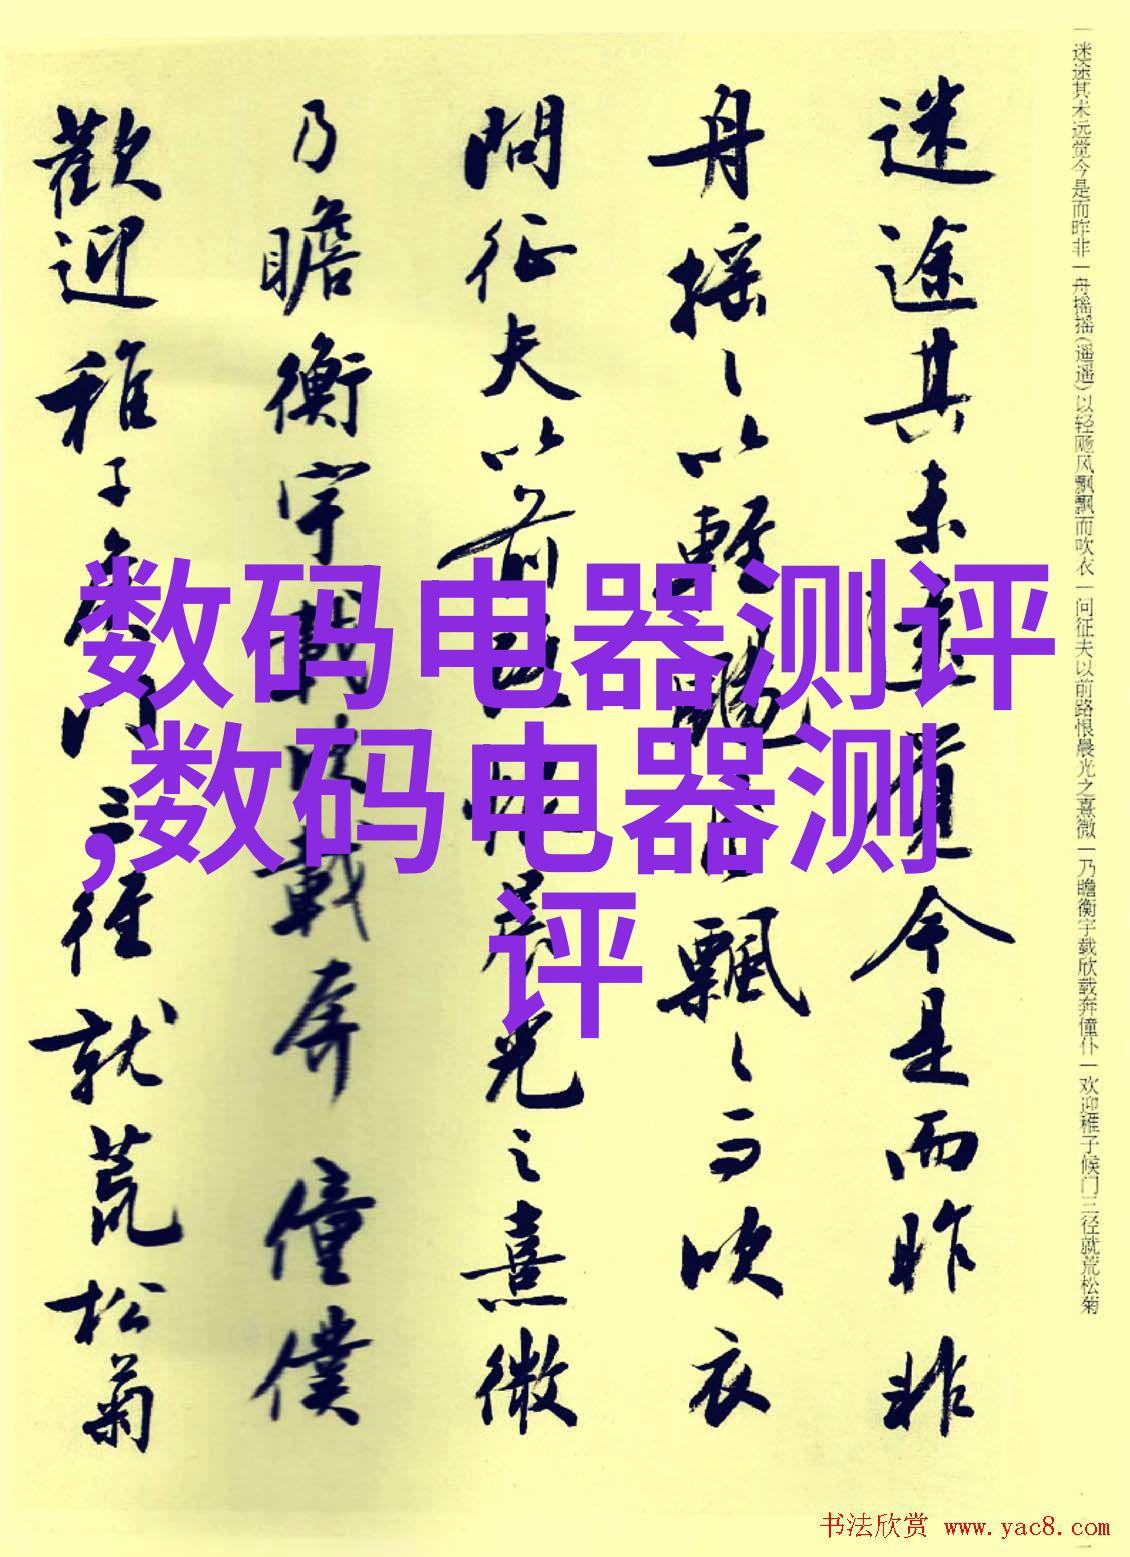 一迷途其未远觉今是而昨非一舟摇摇(遥遥)以轻飏风飘飘而吹衣一问征夫以前路恨晨光之熹微一乃瞻衡宇载欣载奔僮仆一欢迎稚子候门三径就荒松菊
迷途其未遠覺今是而昨非
舟摇〻以輕颺風飄〻而吹衣
問征夫以前路恨晨光之熹微
乃瞻衡宇載欣載奔僮僕
歡迎稚子候門三徑就荒松菊
数码电器测评
,数码电器测
评
书法欣赏 www.yac8.com